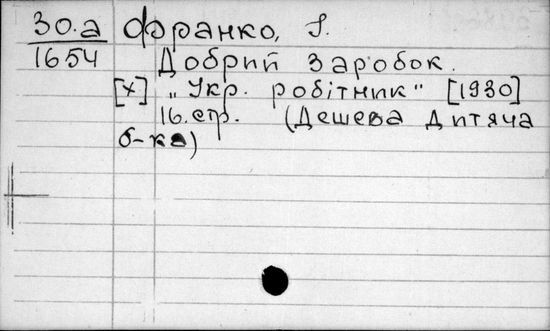 30.а Франко, І.
1654 Добрий заробок.
[Х] „Укр. робітник" [1930]
16.стр. (Дешева дитяча
б-ка)